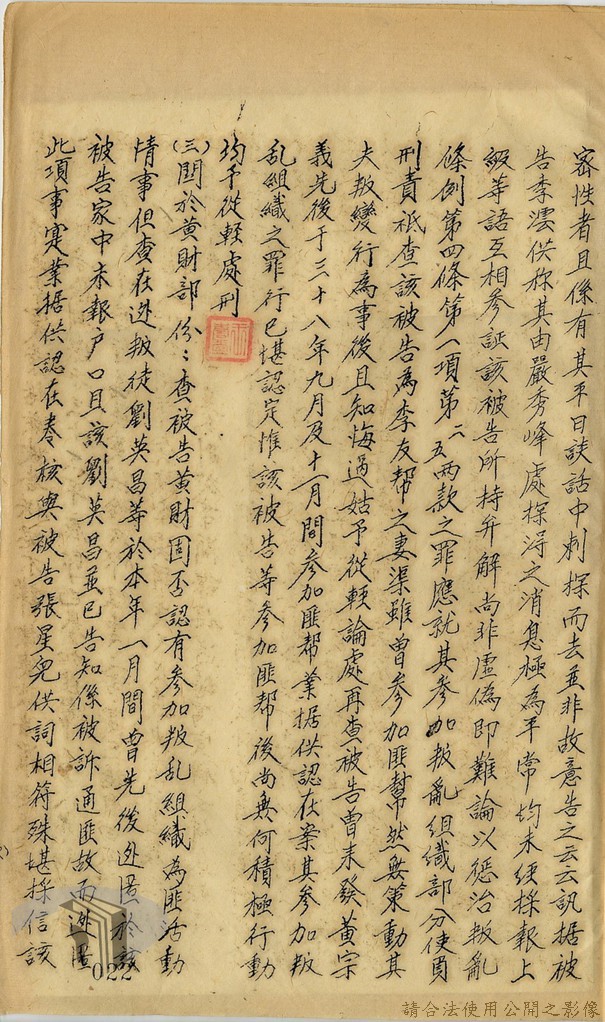 密性者且係有其平日談話中刺探而去並非故意告之云云訊据被
告李澐供称其由嚴秀峰處探得之消息極為平常均未經採報上
級等語互相參証該被告所持弁解尚非虛偽即難論以惩治叛亂
條例第四條第一項第二五兩款之罪應就其參加叛亂組織部分使負
刑責祇查該被告為李友帮之妻渠雖曾參加匪幫然無策動其
夫叛變行為事後且知悔過姑予從輕論處再查被告曾未發黄宗
義先後于三十八年九月及十一月間參加匪帮業据供認在案其參加叛
乱組織之罪行已堪認定惟該被告等參加匪帮後尚無何積極行動
均予從輕處刑
(三)関於黄財部份：查被告黄財固否認有參加叛乱組織為匪活動
情事但查在逃叛徒劉英昌等於本年一月間曾先後逃匿於該
被告家中未報户口且該劉英昌並已告知係被訴通匪故而逃匿
此項事寔業据供認在卷核與被告張星兒供詞相符殊堪採信該
022
請合法使用公開之影像